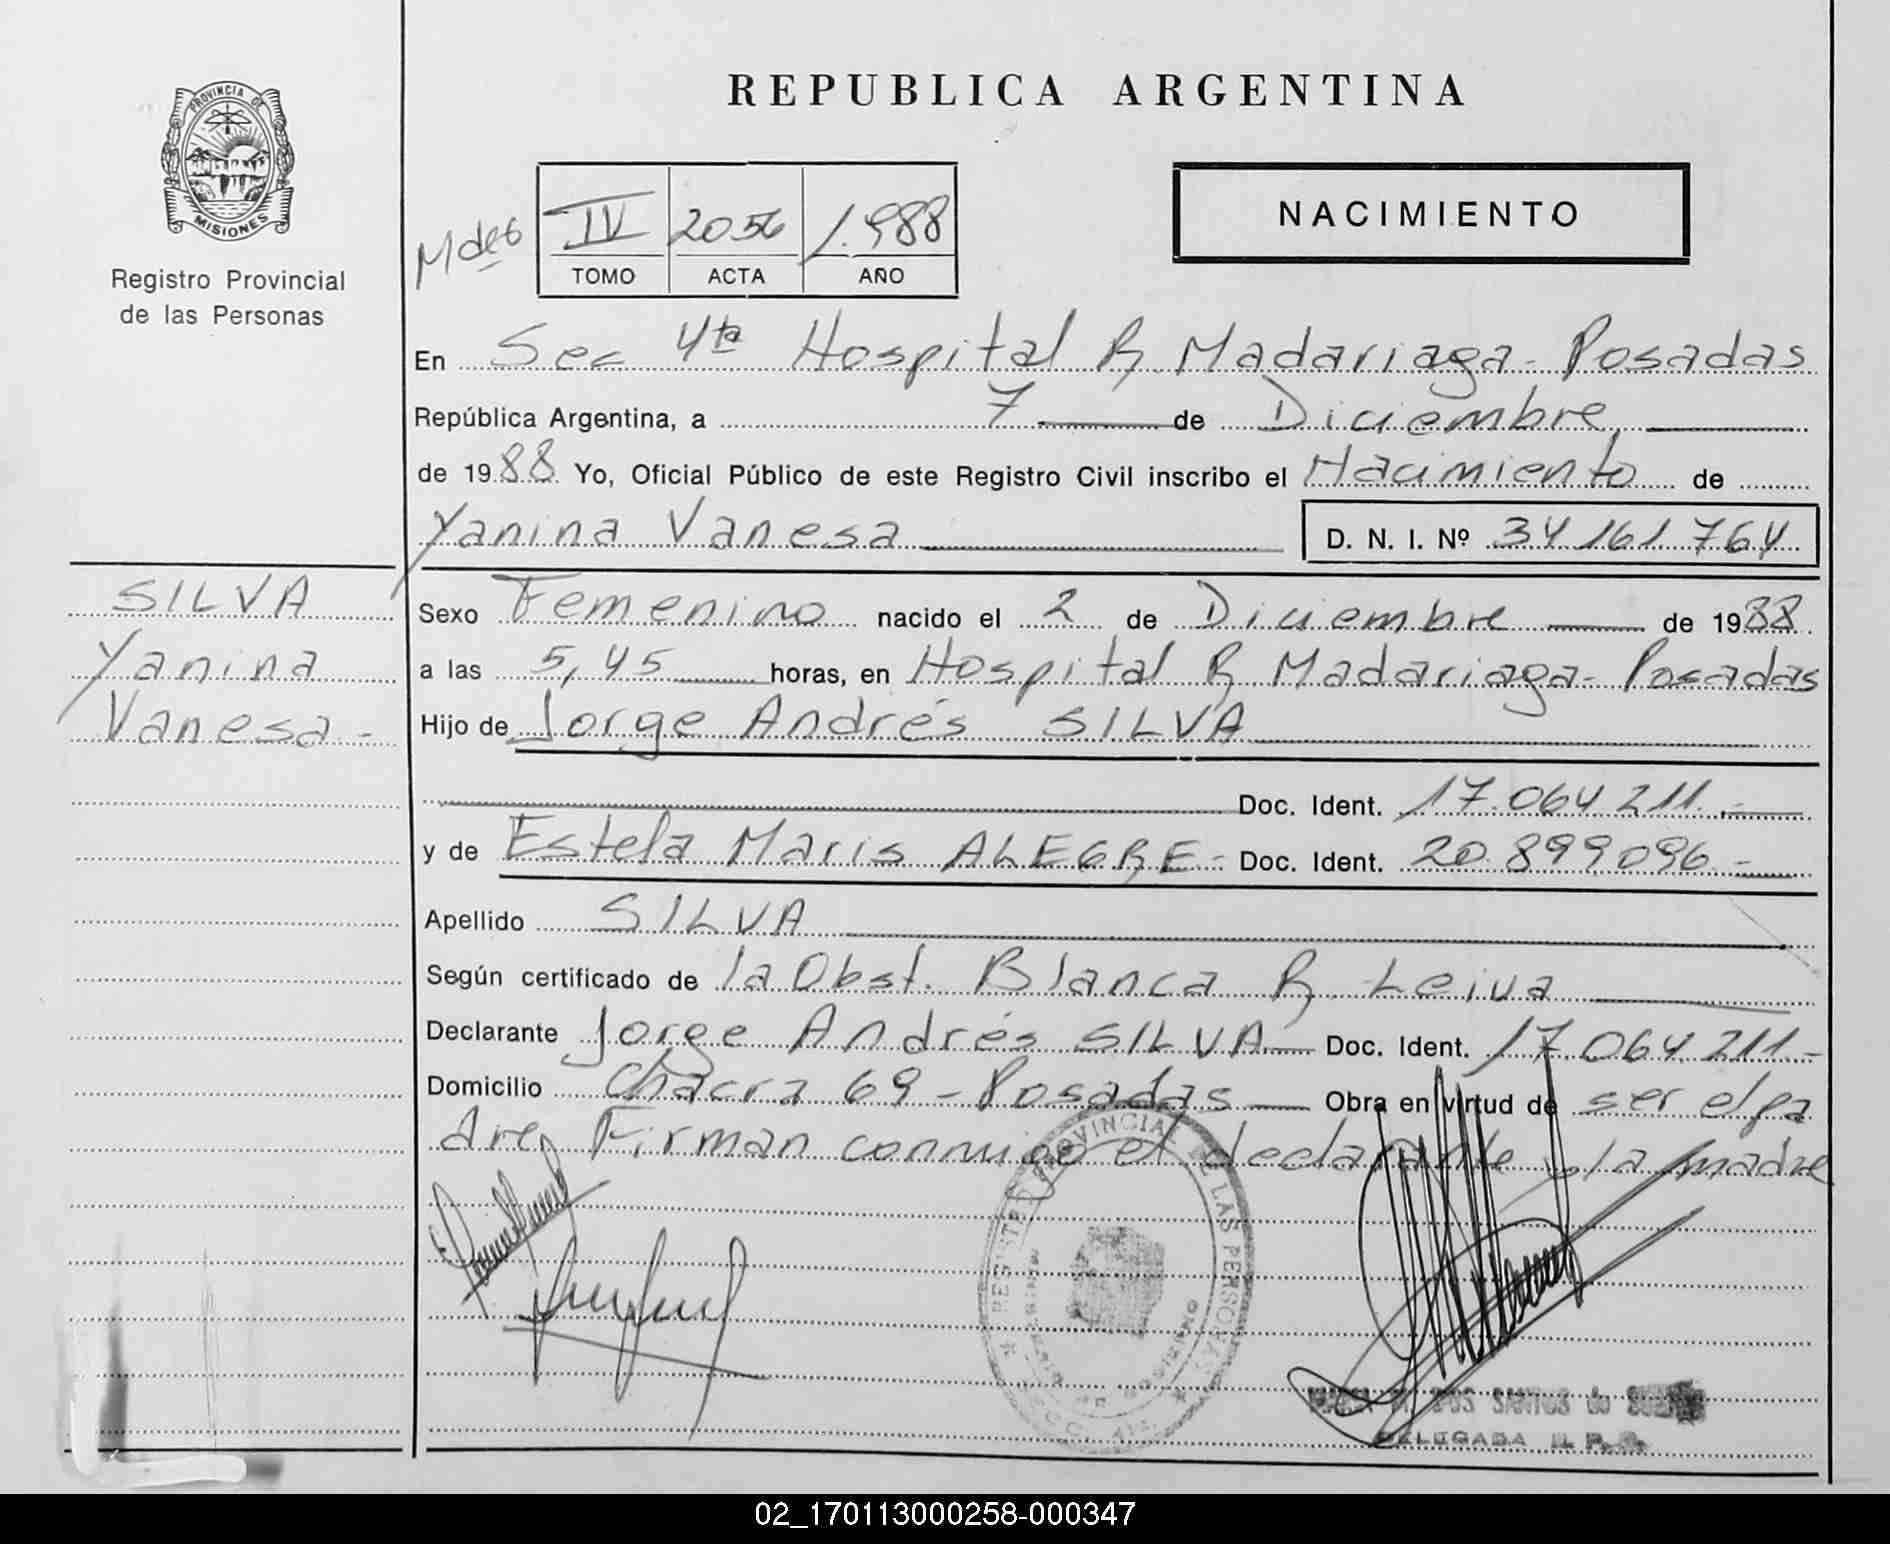 PROVINCIA DE
MISIONES
Registro Provincial
de las Personas
REPUBLICA ARGENTINA
NACIMIENTO
IV 2056 1.988
TOMO ACTA AÑO
En Sec 4ta Hospital R. Madariaga - Posadas
República Argentina, a 7 de Diciembre
de 1988 Yo, Oficial Público de este Registro Civil inscribo el Nacimiento de
Yanina Vanesa D. N. I. Nº 34 161 764
SILVA
Yanina
Vanesa -
Sexo Femenino nacido el 2 de Diciembre de 1988
a las 5,45 horas, en Hospital R Madariaga - Posadas
Hijo de Jorge Andrés SILVA
Doc. Ident. 17.064 211.-
y de Estela Maris ALEGRE - Doc. Ident. 20.899 096.-
Apellido SILVA
Según certificado de la Obst. Blanca R. Leiva
Declarante Jorge Andrés SILVA Doc. Ident. 17 064 211 -
Domicilio Chacra 69 - Posadas Obra en virtud de ser el pa
dre, Firman conmigo el declarante y la madre
REGISTRO PROVINCIAL DE LAS PERSONAS
DOS SANTOS de
DELEGADA R. P.
02_170113000258-000347